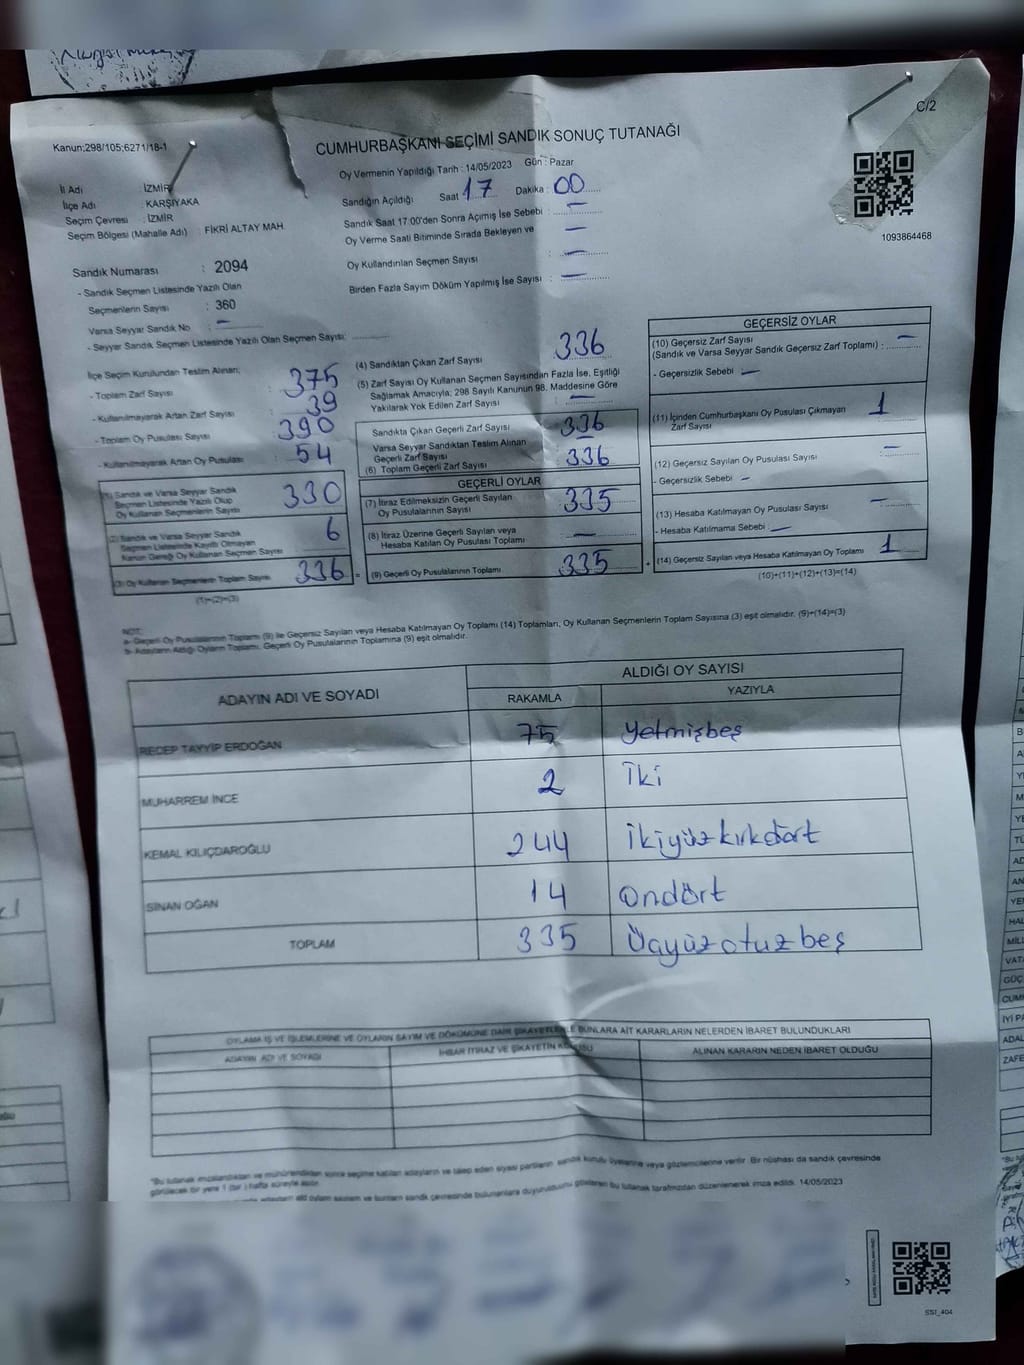 C/2
Kanun;298/105;6271/18-1
CUMHURBAŞKANI SEÇİMİ SANDIK SONUÇ TUTANAĞI
Oy Vermenin Yapıldığı Tarih : 14/05/2023 Gün : Pazar
İl Adı : İZMİR
İlçe Adı : KARŞIYAKA
Seçim Çevresi : İZMİR
Seçim Bölgesi (Mahalle Adı) : FİKRİ ALTAY MAH.
Sandığın Açıldığı Saat 17 Dakika : 00
Sandık Saat 17:00'den Sonra Açımış İse Sebebi : —
Oy Verme Saati Bitiminde Sırada Bekleyen ve —
Oy Kullandırılan Seçmen Sayısı : —
Birden Fazla Sayım Döküm Yapılmış İse Sayısı : —
1093864468
Sandık Numarası : 2094
- Sandık Seçmen Listesinde Yazılı Olan
Seçmenlerin Sayısı : 360
Varsa Seyyar Sandık No : —
- Seyyar Sandık Seçmen Listesinde Yazılı Olan Seçmen Sayısı:
İlçe Seçim Kurulundan Teslim Alınan;
- Toplam Zarf Sayısı : 375
- Kullanılmayarak Artan Zarf Sayısı : 39
- Toplam Oy Pusulası Sayısı : 390
- Kullanılmayarak Artan Oy Pusulası : 54
(1) Sandık ve Varsa Seyyar Sandık
Seçmen Listesinde Yazılı Olup
Oy Kullanan Seçmenlerin Sayısı 330
(2) Sandık ve Varsa Seyyar Sandık
Seçmen Listesinde Kayıtlı Olmayan
Kanun Gereği Oy Kullanan Seçmen Sayısı 6
(3) Oy Kullanan Seçmenlerin Toplam Sayısı 336
(1)+(2)=(3)
(4) Sandıktan Çıkan Zarf Sayısı 336
(5) Zarf Sayısı Oy Kullanan Seçmen Sayısından Fazla İse, Eşitliği
Sağlamak Amacıyla; 298 Sayılı Kanunun 98. Maddesine Göre
Yakılarak Yok Edilen Zarf Sayısı : —
Sandıkta Çıkan Geçerli Zarf Sayısı 336
Varsa Seyyar Sandıktan Teslim Alınan
Geçerli Zarf Sayısı —
(6) Toplam Geçerli Zarf Sayısı 336
GEÇERLİ OYLAR
(7) İtiraz Edilmeksizin Geçerli Sayılan
Oy Pusulasının Sayısı 335
(8) İtiraz Üzerine Geçerli Sayılan veya
Hesaba Katılan Oy Pusulası Toplamı —
= (9) Geçerli Oy Pusulalarının Toplamı 335
GEÇERSİZ OYLAR
(10) Geçersiz Zarf Sayısı —
(Sandık ve Varsa Seyyar Sandık Geçersiz Zarf Toplamı) :
- Geçersizlik Sebebi —
(11) İçinden Cumhurbaşkanı Oy Pusulası Çıkmayan
Zarf Sayısı 1
(12) Geçersiz Sayılan Oy Pusulası Sayısı : —
- Geçersizlik Sebebi —
(13) Hesaba Katılmayan Oy Pusulası Sayısı —
- Hesaba Katılmama Sebebi : —
+ (14) Geçersiz Sayılan veya Hesaba Katılmayan Oy Toplamı 1
(10)+(11)+(12)+(13)=(14)
NOT:
a- Geçerli Oy Pusulalarının Toplamı (9) ile Geçersiz Sayılan veya Hesaba Katılmayan Oy Toplamı (14) Toplamları, Oy Kullanan Seçmenlerin Toplam Sayısına (3) eşit olmalıdır. (9)+(14)=(3)
b- Adayların Aldığı Oyların Toplamı, Geçerli Oy Pusulalarının Toplamına (9) eşit olmalıdır.
ADAYIN ADI VE SOYADI
ALDIĞI OY SAYISI
RAKAMLA YAZIYLA
RECEP TAYYİP ERDOĞAN 75 Yetmişbeş
MUHARREM İNCE 2 İki
KEMAL KILIÇDAROĞLU 244 İkiyüzkırkdört
SİNAN OĞAN 14 Ondört
TOPLAM 335 Üçyüzotuzbeş
OYLAMA İŞ VE İŞLEMLERİNE VE OYLARIN SAYIM VE DÖKÜMÜNE DAİR ŞİKAYETLERLE BUNLARA AİT KARARLARIN NELERDEN İBARET BULUNDUKLARI
ADAYIN ADI VE SOYADI İHBAR İTİRAZ VE ŞİKAYETİN KONUSU ALINAN KARARIN NEDEN İBARET OLDUĞU
*Bu tutanak imzalandıktan ve mühürlendikten sonra seçime katılan adayların ve talep eden siyasi partilerin sandık kurulu üyelerine veya gözlemcilerine verilir. Bir nüshası da sandık çevresinde
görülecek bir yere 1 (bir) hafta süreyle asılır.
bu tutanak tarafımızdan düzenlenerek imza edildi. 14/05/2023
SS1_404